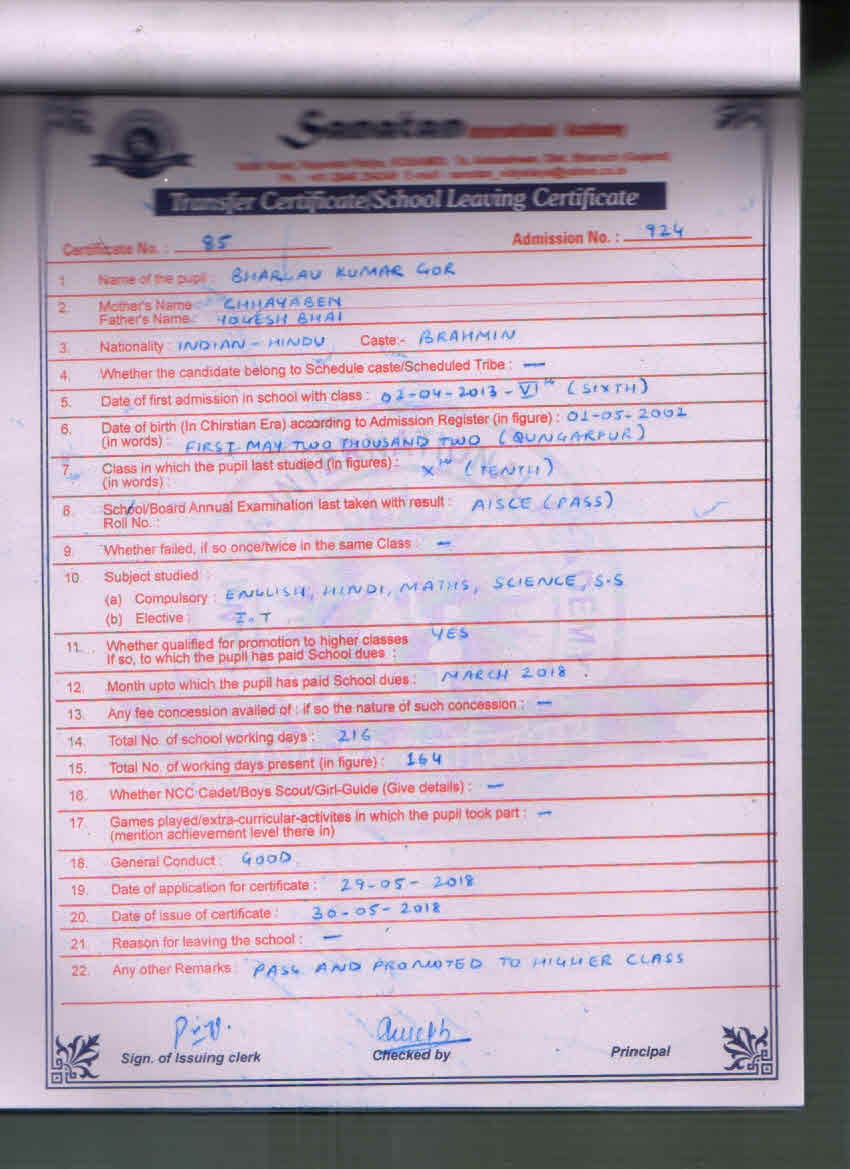 Sanatan International Academy
Transfer Certificate/School Leaving Certificate
Certificate No. : 85 Admission No. : 924
1. Name of the pupil : BHARGAV KUMAR GOR
2. Mother's Name : CHHAYABEN
Father's Name : YOGESH BHAI
3. Nationality : INDIAN - HINDU Caste:- BRAHMIN
4. Whether the candidate belong to Schedule caste/Scheduled Tribe : —
5. Date of first admission in school with class : 02-04-2013 - VIth (SIXTH)
6. Date of birth (In Chirstian Era) according to Admission Register (in figure) : 01-05-2002
(in words) : FIRST MAY TWO THOUSAND TWO (DUNGARPUR)
7. Class in which the pupil last studied (in figures) : Xth (TENTH)
(in words) :
8. School/Board Annual Examination last taken with result : AISCE (PASS)
Roll No. :
9. Whether failed, if so once/twice in the same Class : —
10. Subject studied :
(a) Compulsory : ENGLISH, HINDI, MATHS, SCIENCE, S.S
(b) Elective : I.T
11. Whether qualified for promotion to higher classes YES
If so, to which the pupil has paid School dues :
12. Month upto which the pupil has paid School dues : MARCH 2018 .
13. Any fee concession availed of : if so the nature of such concession : —
14. Total No. of school working days : 216
15. Total No. of working days present (in figure) : 164
16. Whether NCC Cadet/Boys Scout/Girl-Guide (Give details) : —
17. Games played/extra-curricular-activites in which the pupil took part : —
(mention achievement level there in)
18. General Conduct : GOOD
19. Date of application for certificate : 29-05-2018
20. Date of issue of certificate : 30-05-2018
21. Reason for leaving the school : —
22. Any other Remarks : PASS AND PROMOTED TO HIGHER CLASS
Sign. of Issuing clerk Checked by Principal